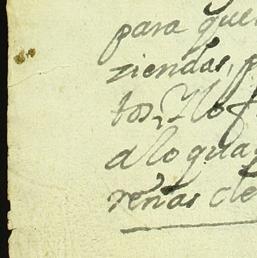 para que
ziendas, p
tos, Y lo f
a lo qua
reñas de